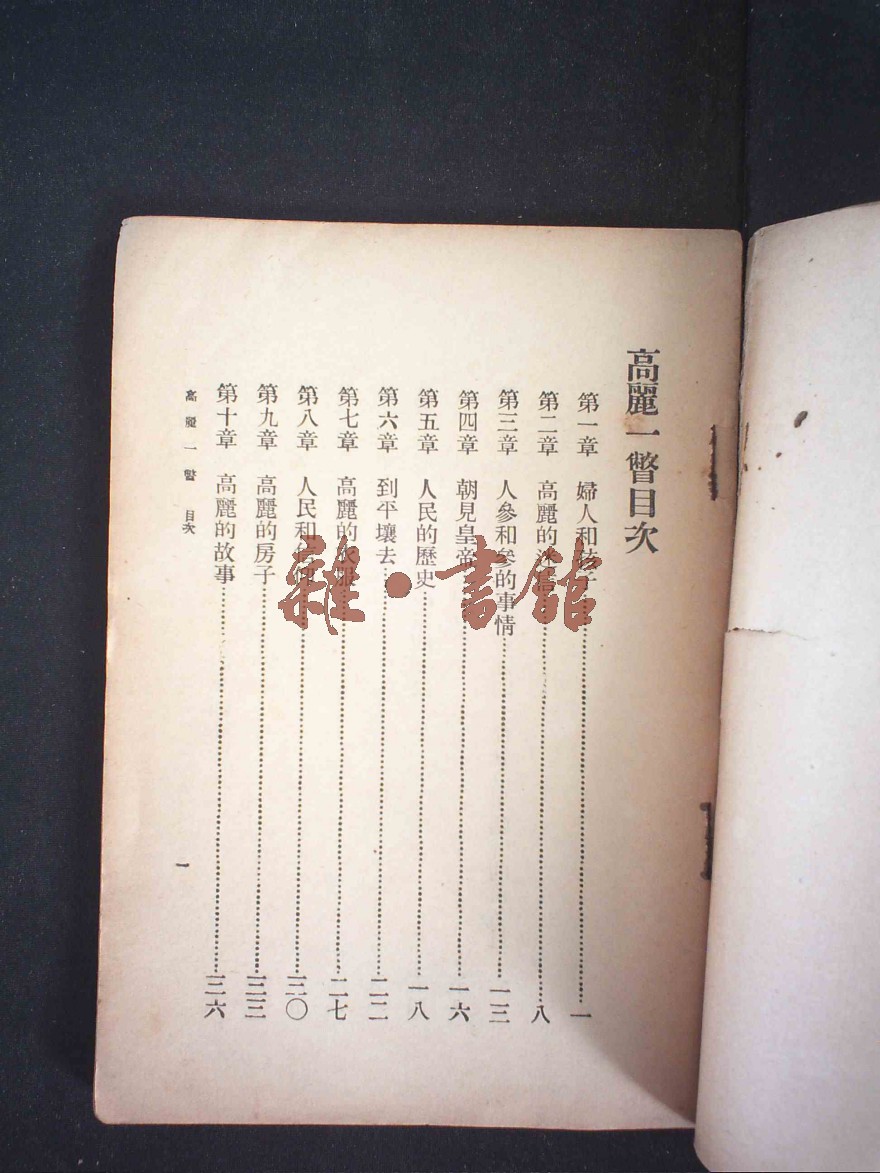 高麗一瞥目次
第一章 婦人和孩子 一
第二章 高麗的 八
第三章 人參和參的事情 一三
第四章 朝見皇帝 一六
第五章 人民的歷史 一八
第六章 到平壤去 二二
第七章 高麗的 二七
第八章 人民和 三〇
第九章 高麗的房子 三三
第十章 高麗的故事 三六
高麗一瞥 目次
一
雜·書館